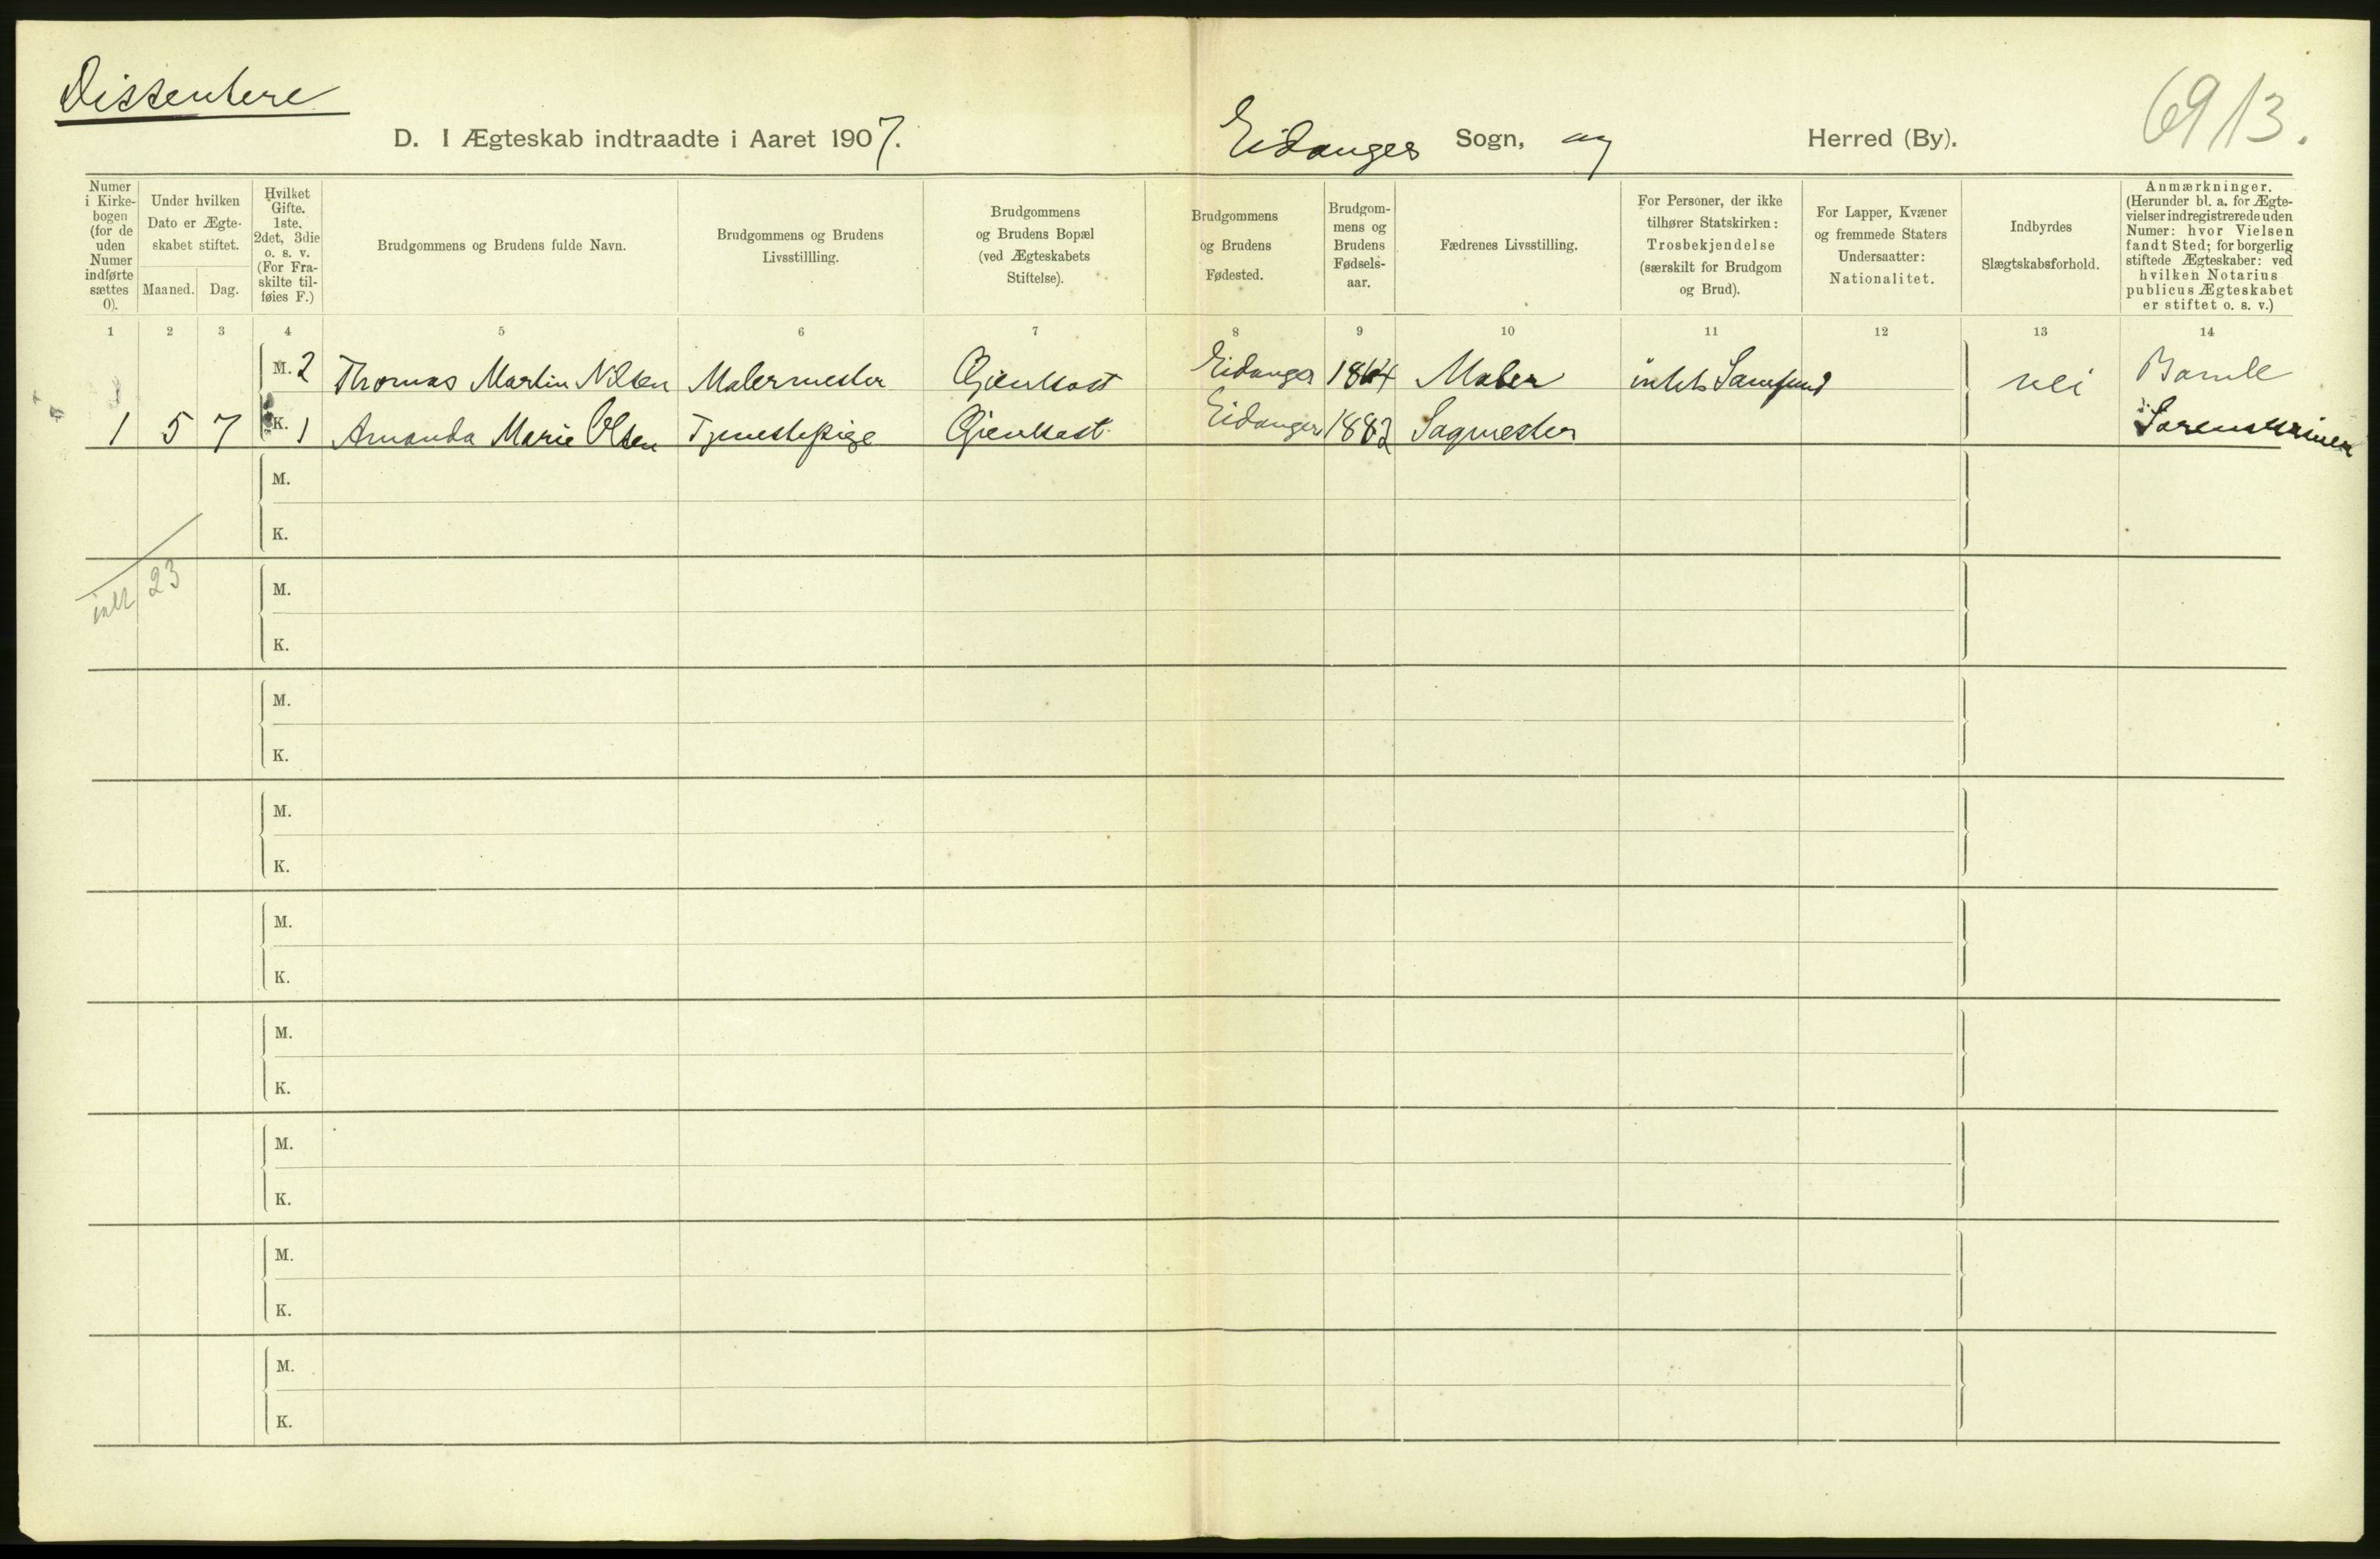 Dissentere
D. I Ægteskab indtraadte i Aaret 1907.
Eidanger Sogn, og Herred (By).
6913.
Numer i Kirkebogen (for de uden Numer indførte sættes 0).
Under hvilken Dato er Ægteskabet stiftet.
Maaned. Dag.
Hvilket Gifte. 1ste, 2det, 3die o. s. v. (For Fraskilte tilføies F.)
Brudgommens og Brudens fulde Navn.
Brudgommens og Brudens Livsstillling.
Brudgommens og Brudens Bopæl (ved Ægteskabets Stiftelse).
Brudgommens og Brudens Fødested.
Brudgommens og Brudens Fødselsaar.
Fædrenes Livsstilling.
For Personer, der ikke tilhører Statskirken: Trosbekjendelse (særskilt for Brudgom og Brud).
For Lapper, Kvæner og fremmede Staters Undersaatter: Nationalitet.
Indbyrdes Slægtskabsforhold.
Anmærkninger. (Herunder bl. a. for Ægtevielser indregistrerede uden Numer: hvor Vielsen fandt Sted; for borgerlig stiftede Ægteskaber: ved hvilken Notarius publicus Ægteskabet er stiftet o. s. v.)
1 2 3 4 5 6 7 8 9 10 11 12 13 14
M. 2 Thomas Martin Nilsen Malermester Gjenkast Eidanger 1864 Maler intet Samfund nei Bamle
1 5 7 K. 1 Amanda Marie Olsen Tjenestepige Gjenkast Eidanger 1882 Sagmester Sorenskriver
M.
K.
23
M.
K.
M.
K.
M.
K.
M.
K.
M.
K.
M.
K.
M.
K.
M.
K.